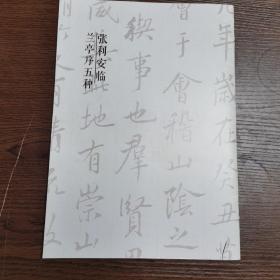 张利安临
兰亭序五种
九年歲在癸丑
于會稽山陰之
稧事也羣賢
此地有崇山
有清